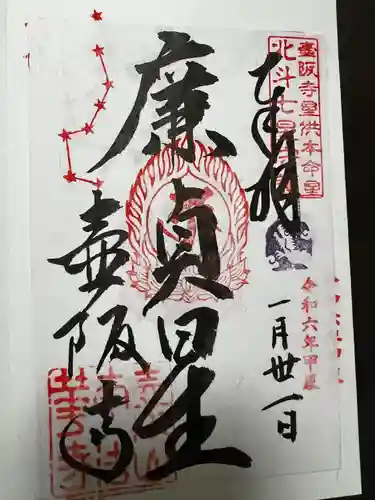 壷阪寺星供本命星
北斗七星
奉拝
令和六年甲辰
一月卅一日
廉貞星
壷阪寺